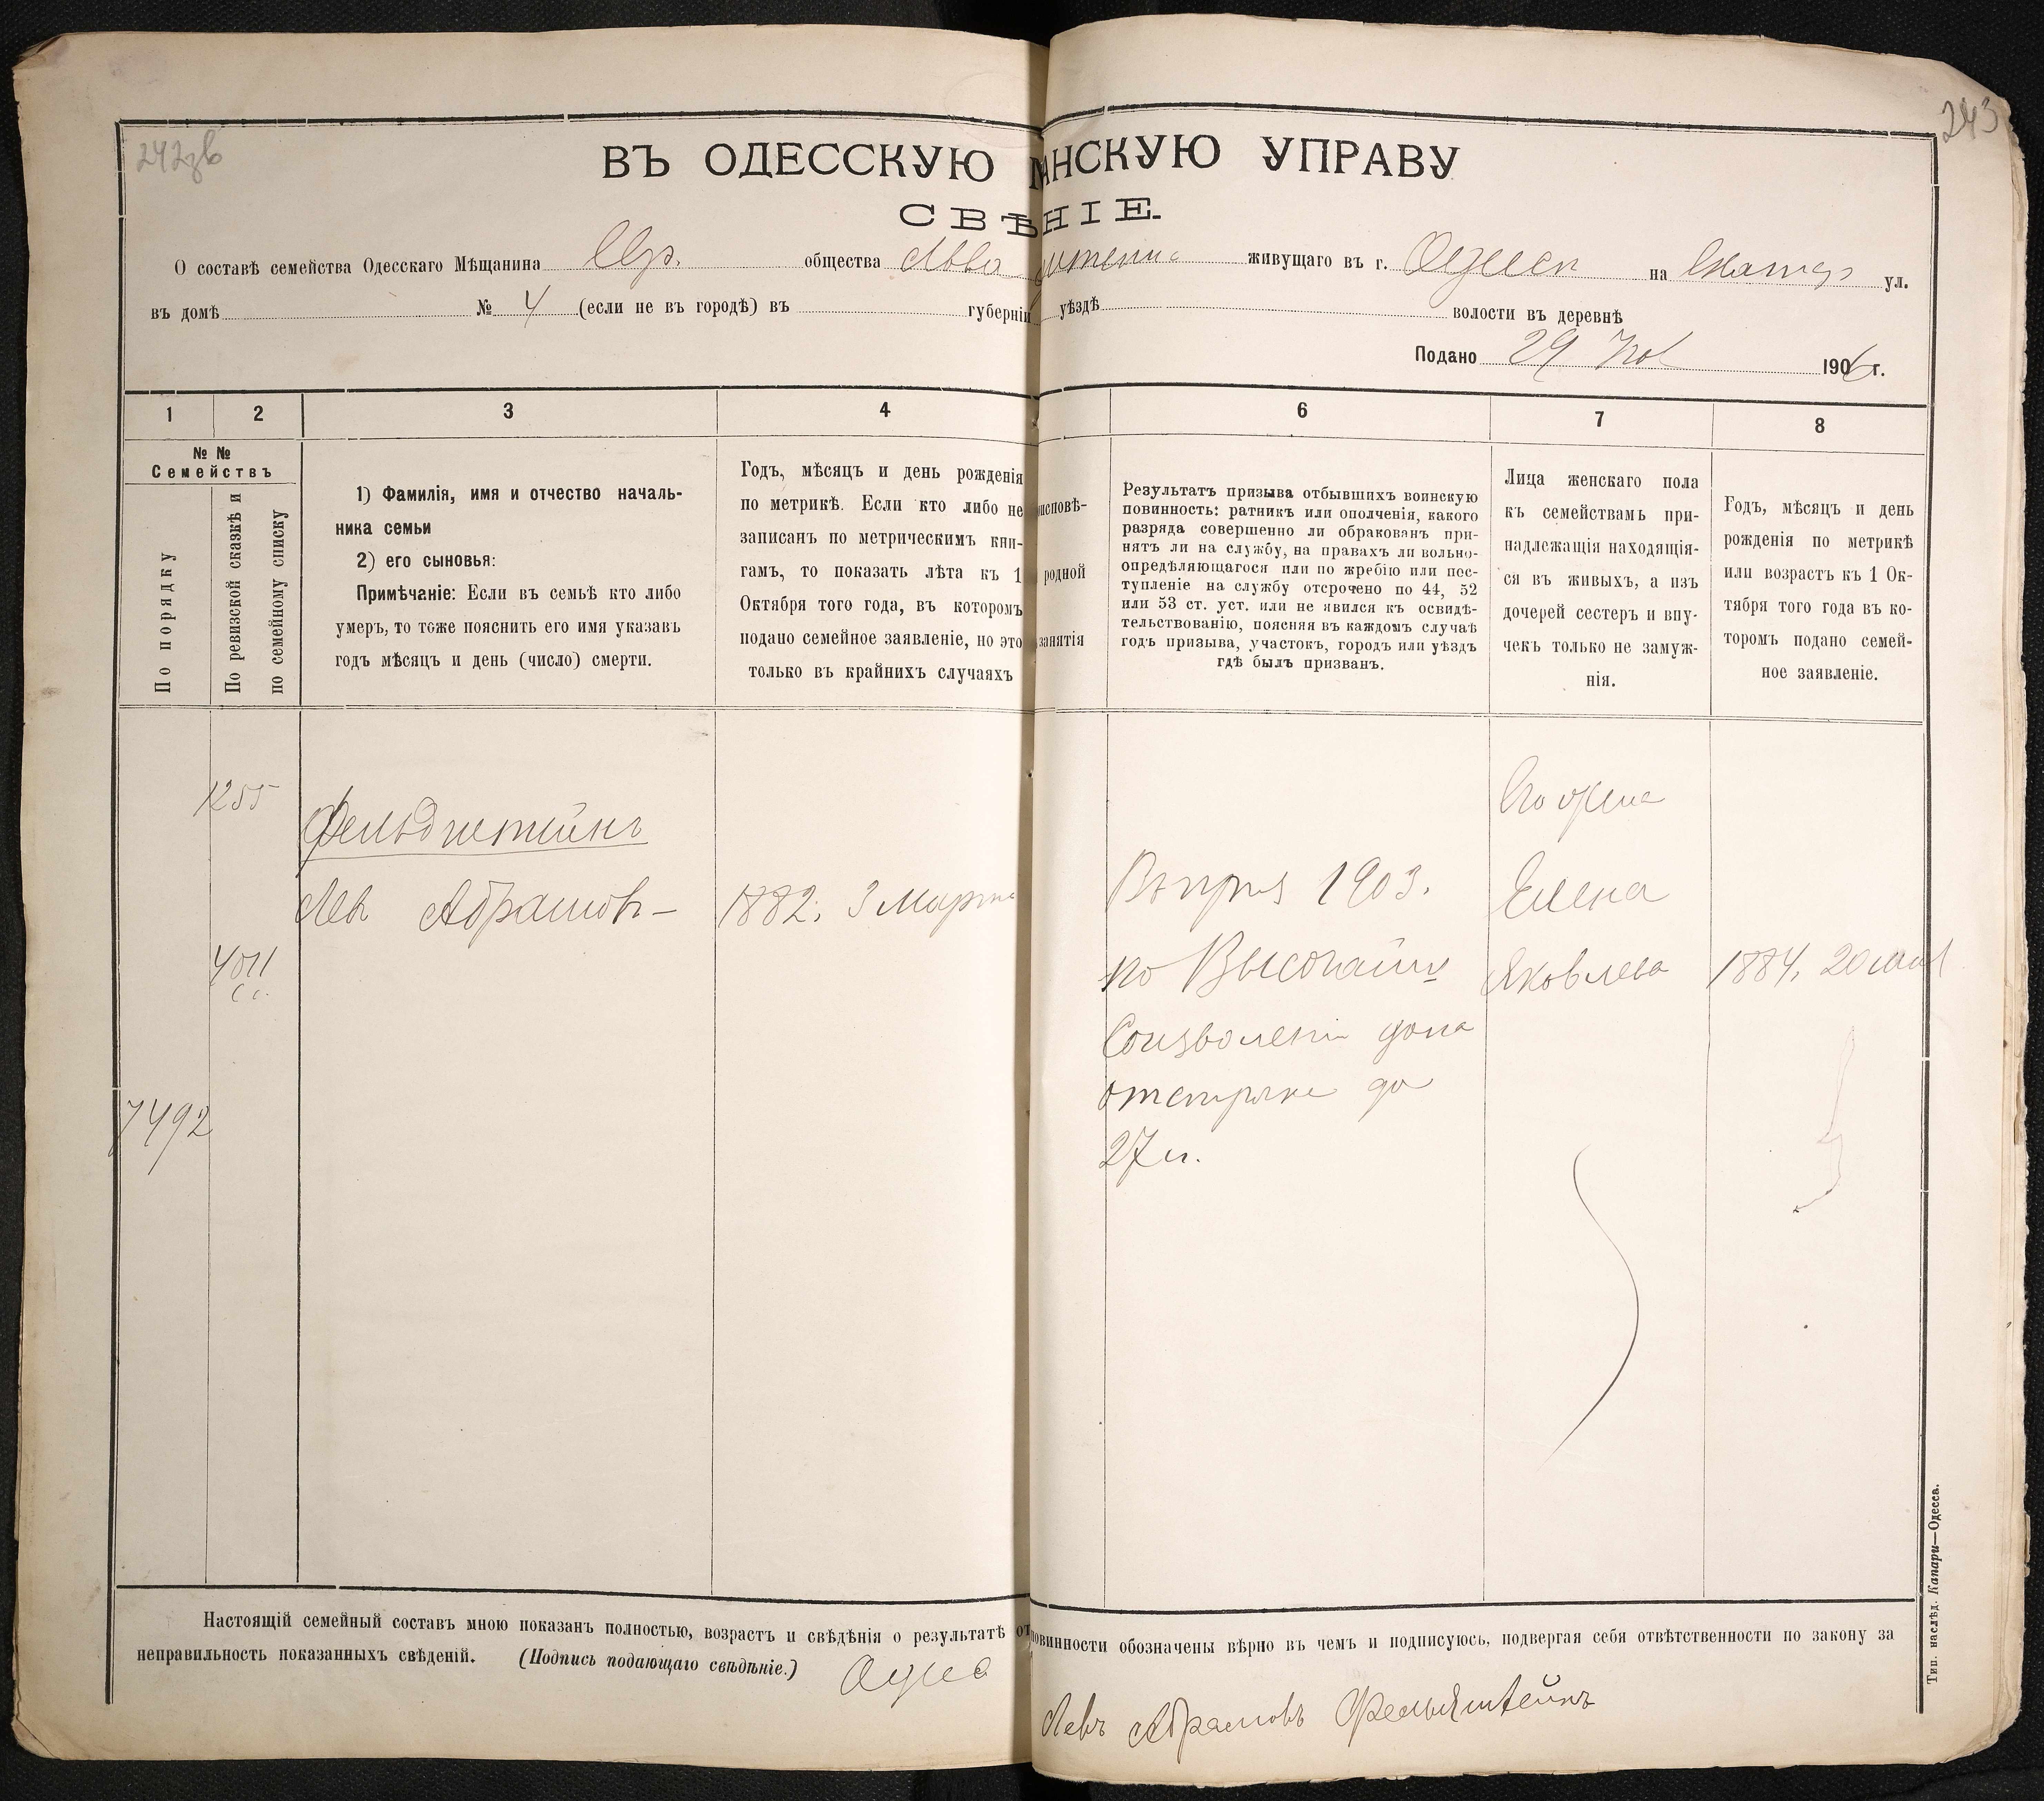 242зв
243
ВЪ ОДЕССКУЮ АНСКУЮ УПРАВУ
СВѢНІЕ.
О составѣ семейства Одесскаго Мѣщанина Евр. общества Льва штейна живущаго въ г. Одессѣ на ул.
въ домѣ № 4 (если не въ городѣ) въ губерніи уѣздѣ волости въ деревнѣ
Подано 29 1906 г.
1 2 3 4 6 7 8
№ № Семействъ
По порядку
По ревизской сказкѣ и по семейному списку
1) Фамилія, имя и отчество началь-
ника семьи
2) его сыновья:
Примѣчаніе: Если въ семьѣ кто либо
умеръ, то тоже пояснить его имя указавъ
годъ мѣсяцъ и день (число) смерти.
Годъ, мѣсяцъ и день рожденія
по метрикѣ. Если кто либо не
записанъ по метрическимъ кни-
гамъ, то показать лѣта къ 1
Октября того года, въ которомъ
подано семейное заявленіе, но это
только въ крайнихъ случаяхъ
исповѣ-
родной
занятія
Результатъ призыва отбывшихъ воинскую
повинность: ратникъ или ополченія, какого
разряда совершенно ли обракованъ при-
нятъ ли на службу, на правахъ ли вольно-
опредѣляющагося или по жребію или пос-
тупленіе на службу отсрочено по 44, 52
или 53 ст. уст. или не явился къ освидѣ-
тельствованію, поясняя въ каждомъ случаѣ
годъ призыва, участокъ, городъ или уѣздъ
гдѣ былъ призванъ.
Лица женскаго пола
къ семействамъ при-
надлежащія находящія-
ся въ живыхъ, а изъ
дочерей сестеръ и вну-
чекъ только не замуж-
нія.
Годъ, мѣсяцъ и день
рожденія по метрикѣ
или возрастъ къ 1 Ок-
тября того года въ ко-
торомъ подано семей-
ное заявленіе.
1255
Фельдштейнъ
Левъ Абрамовъ —
1882. 3 Марта
4011
7492
Въ призывъ 1903.
по Высочайше
Соизволенію дана
отсрочка до
27 л.
Его жена
Елена
Яковлева
1884, 20
Настоящій семейный составъ мною показанъ полностью, возрастъ и свѣдѣнія о результатѣ от повинности обозначены вѣрно въ чемъ и подписуюсь, подвергая себя отвѣтственности по закону за
неправильность показанныхъ свѣденій. (Подпись подающаго свѣдѣніе.)
Левъ Абрамовъ Фельдштейнъ
Тип. наслѣд. Капари—Одесса.